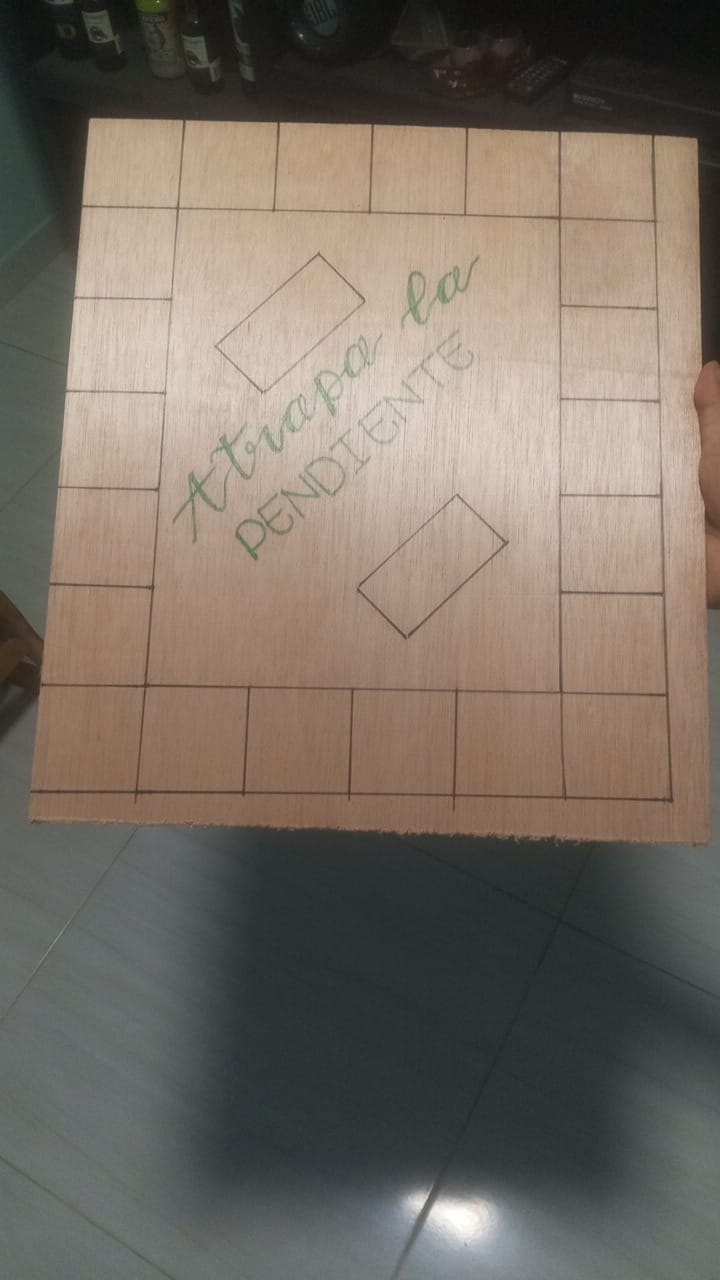 Atrapa la
PENDIENTE
JBL